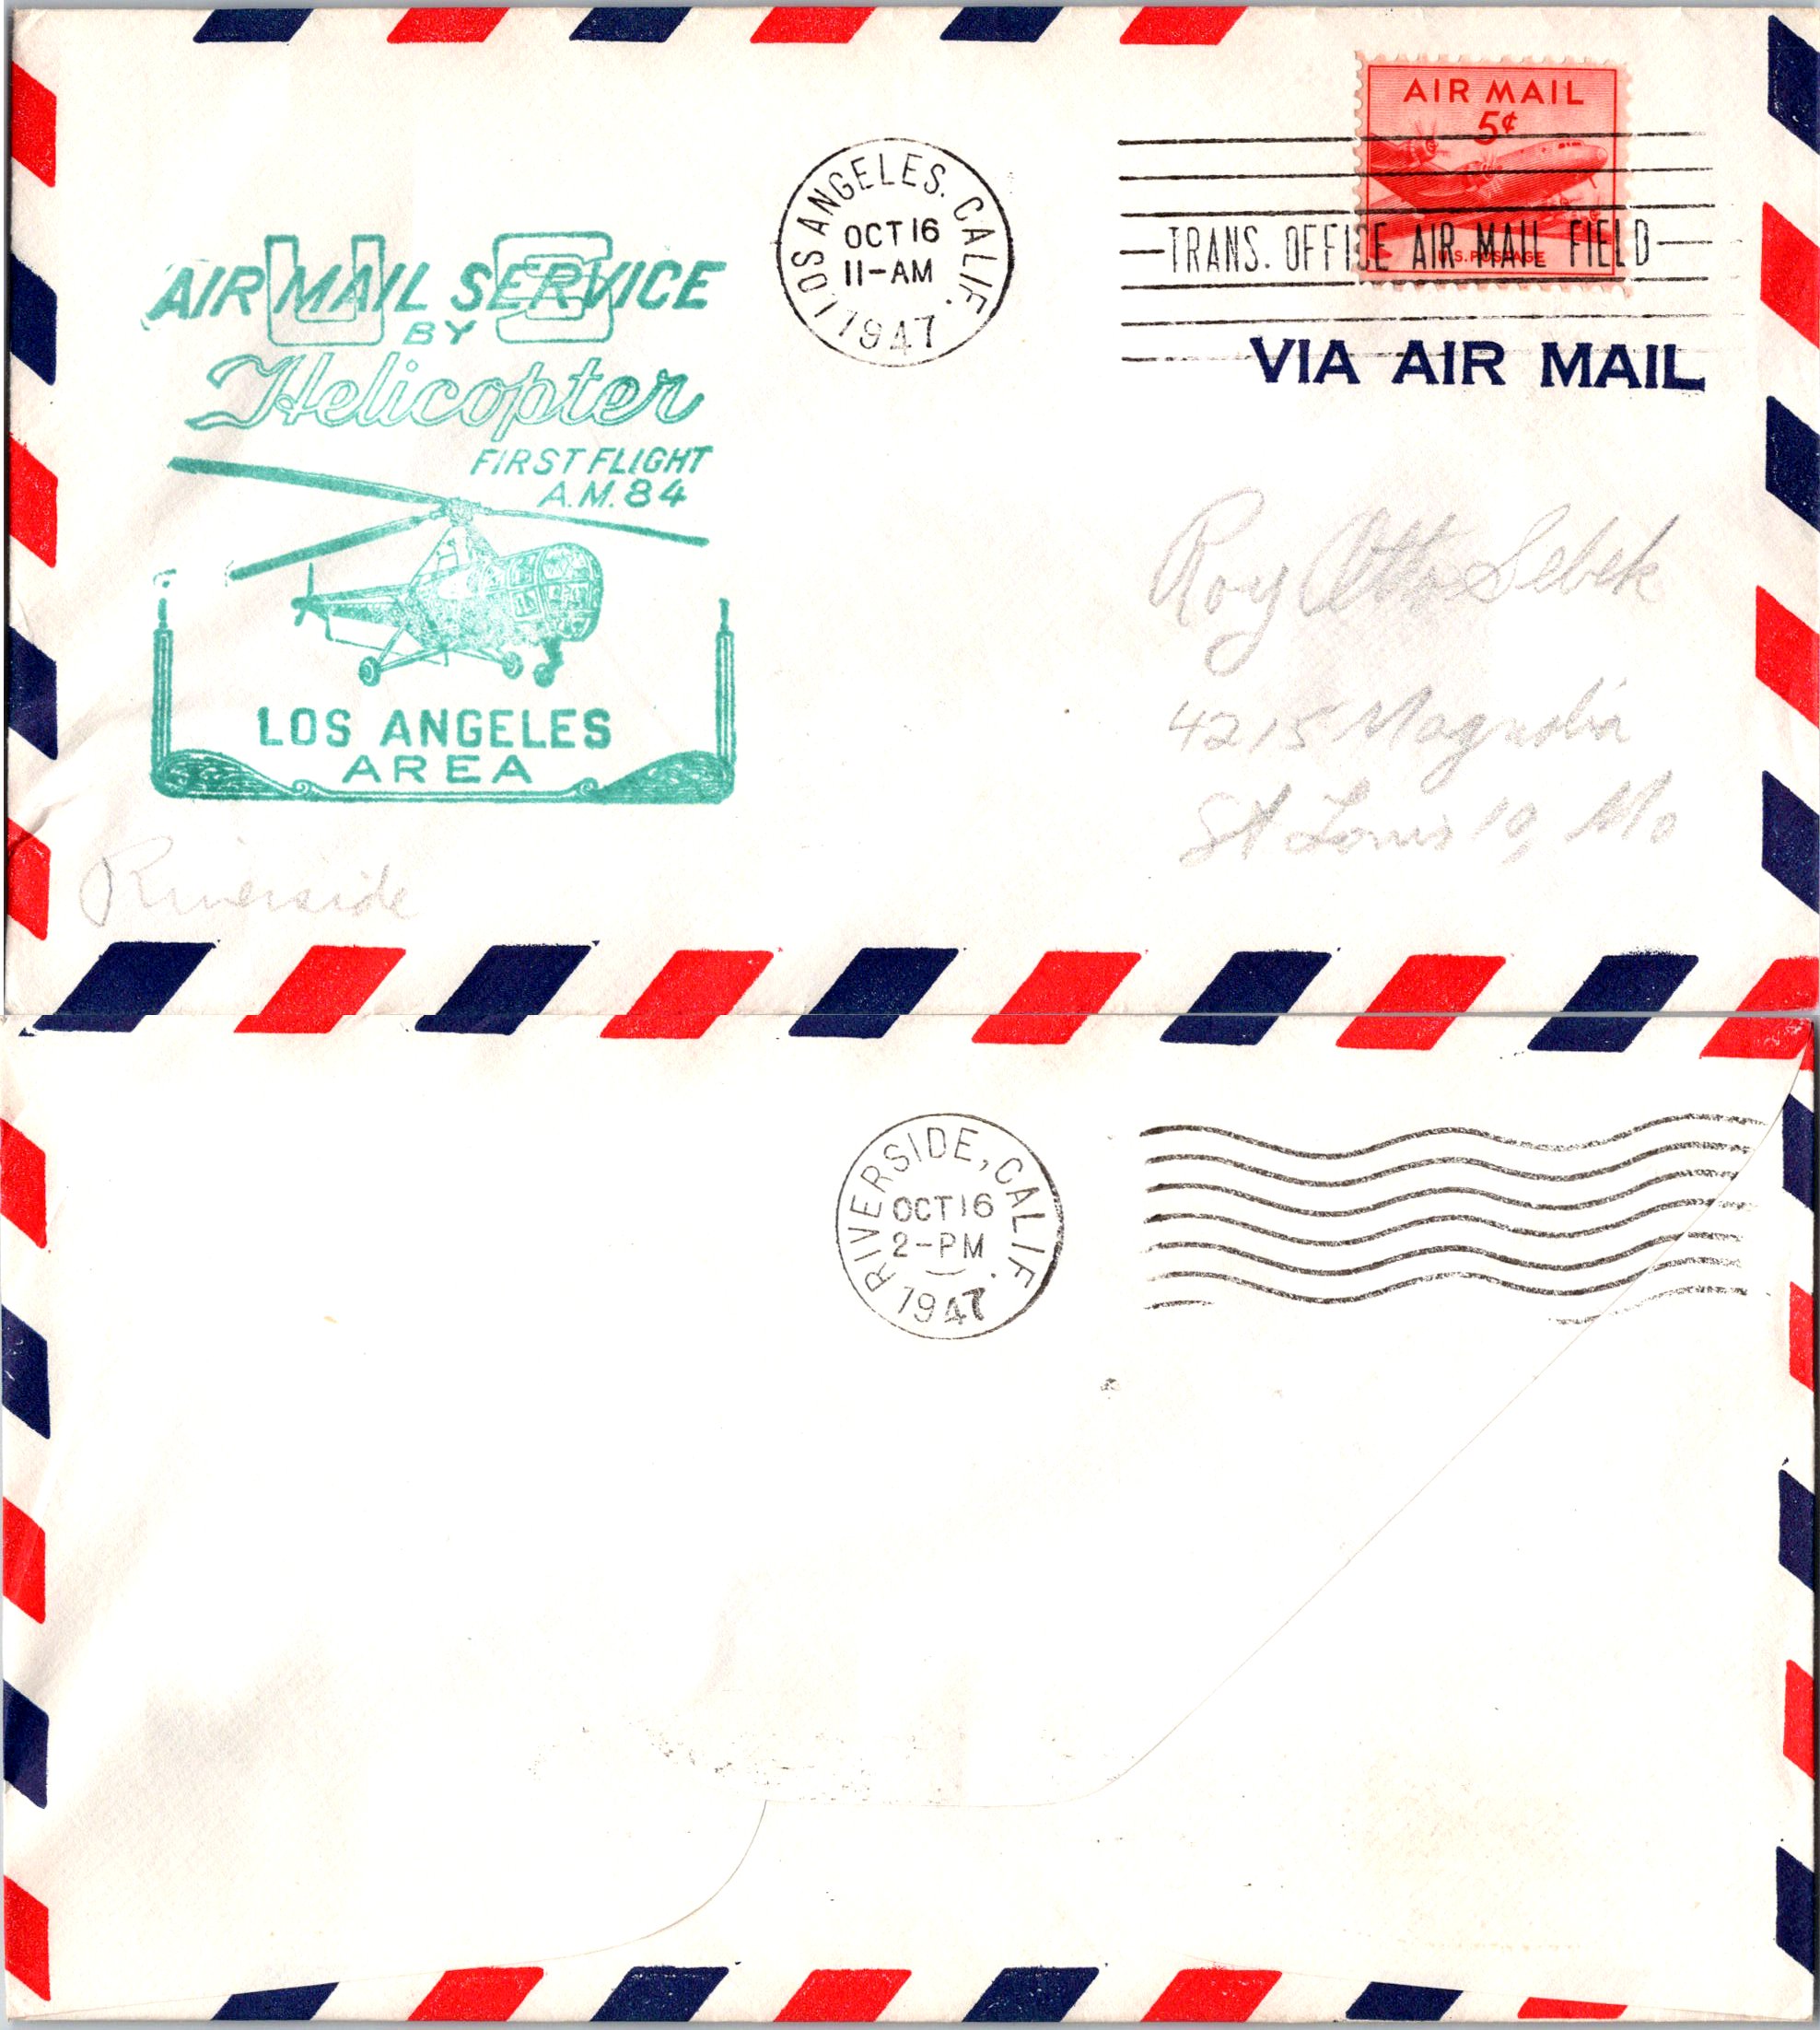 AIR MAIL
5¢
U.S. POSTAGE
LOS ANGELES, CALIF.
OCT 16
11-AM
1947
TRANS. OFFICE AIR MAIL FIELD
VIA AIR MAIL
US
AIR MAIL SERVICE
BY
Helicopter
FIRST FLIGHT
A.M. 84
LOS ANGELES
AREA
Roy Otto Sebek
4215 Magnolia
St Louis 10, Mo
Riverside
RIVERSIDE, CALIF.
OCT 16
2-PM
1947